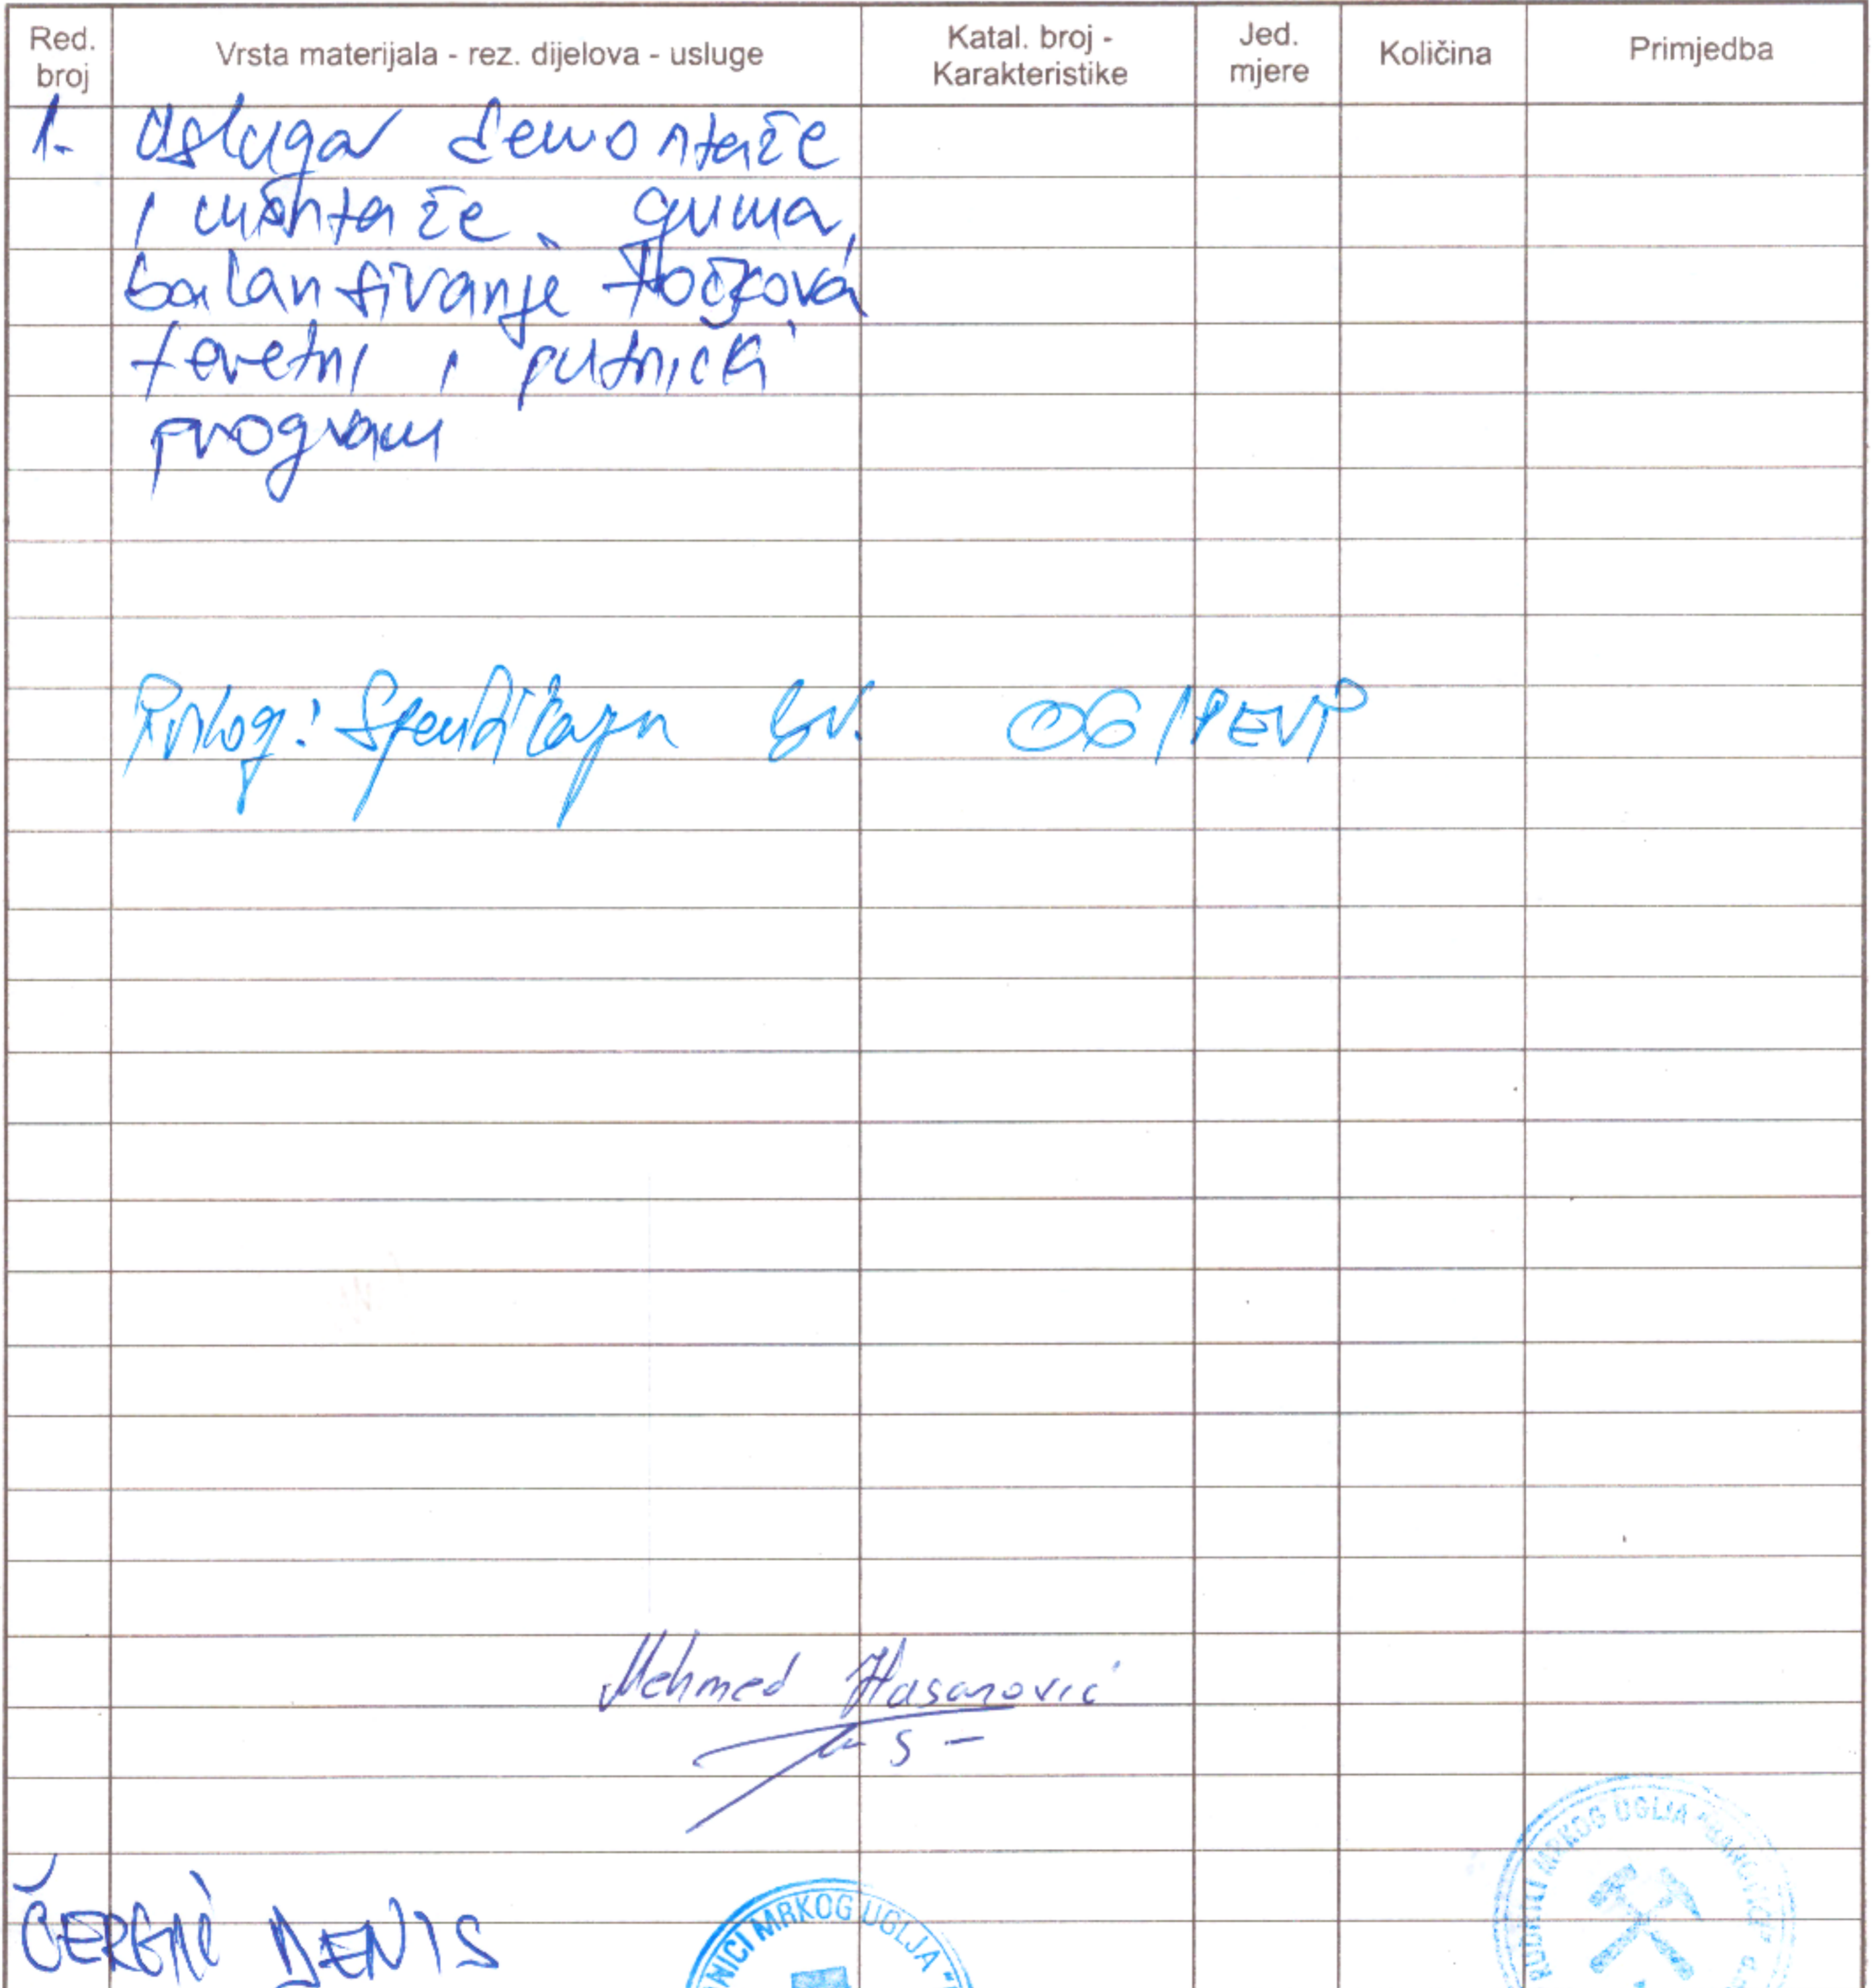 Red. broj
Vrsta materijala - rez. dijelova - usluge
Katal. broj - Karakteristike
Jed. mjere
Količina
Primjedba
1. Usluga demontaže
i montaže guma,
balansiranje točkova
teretni i putnički
program
Prilog: Specifikacija br. 06/
Mehmed Hasanović
DENIS
MRKOG UGLJA "
RUDNICI MRKOG UGLJA "